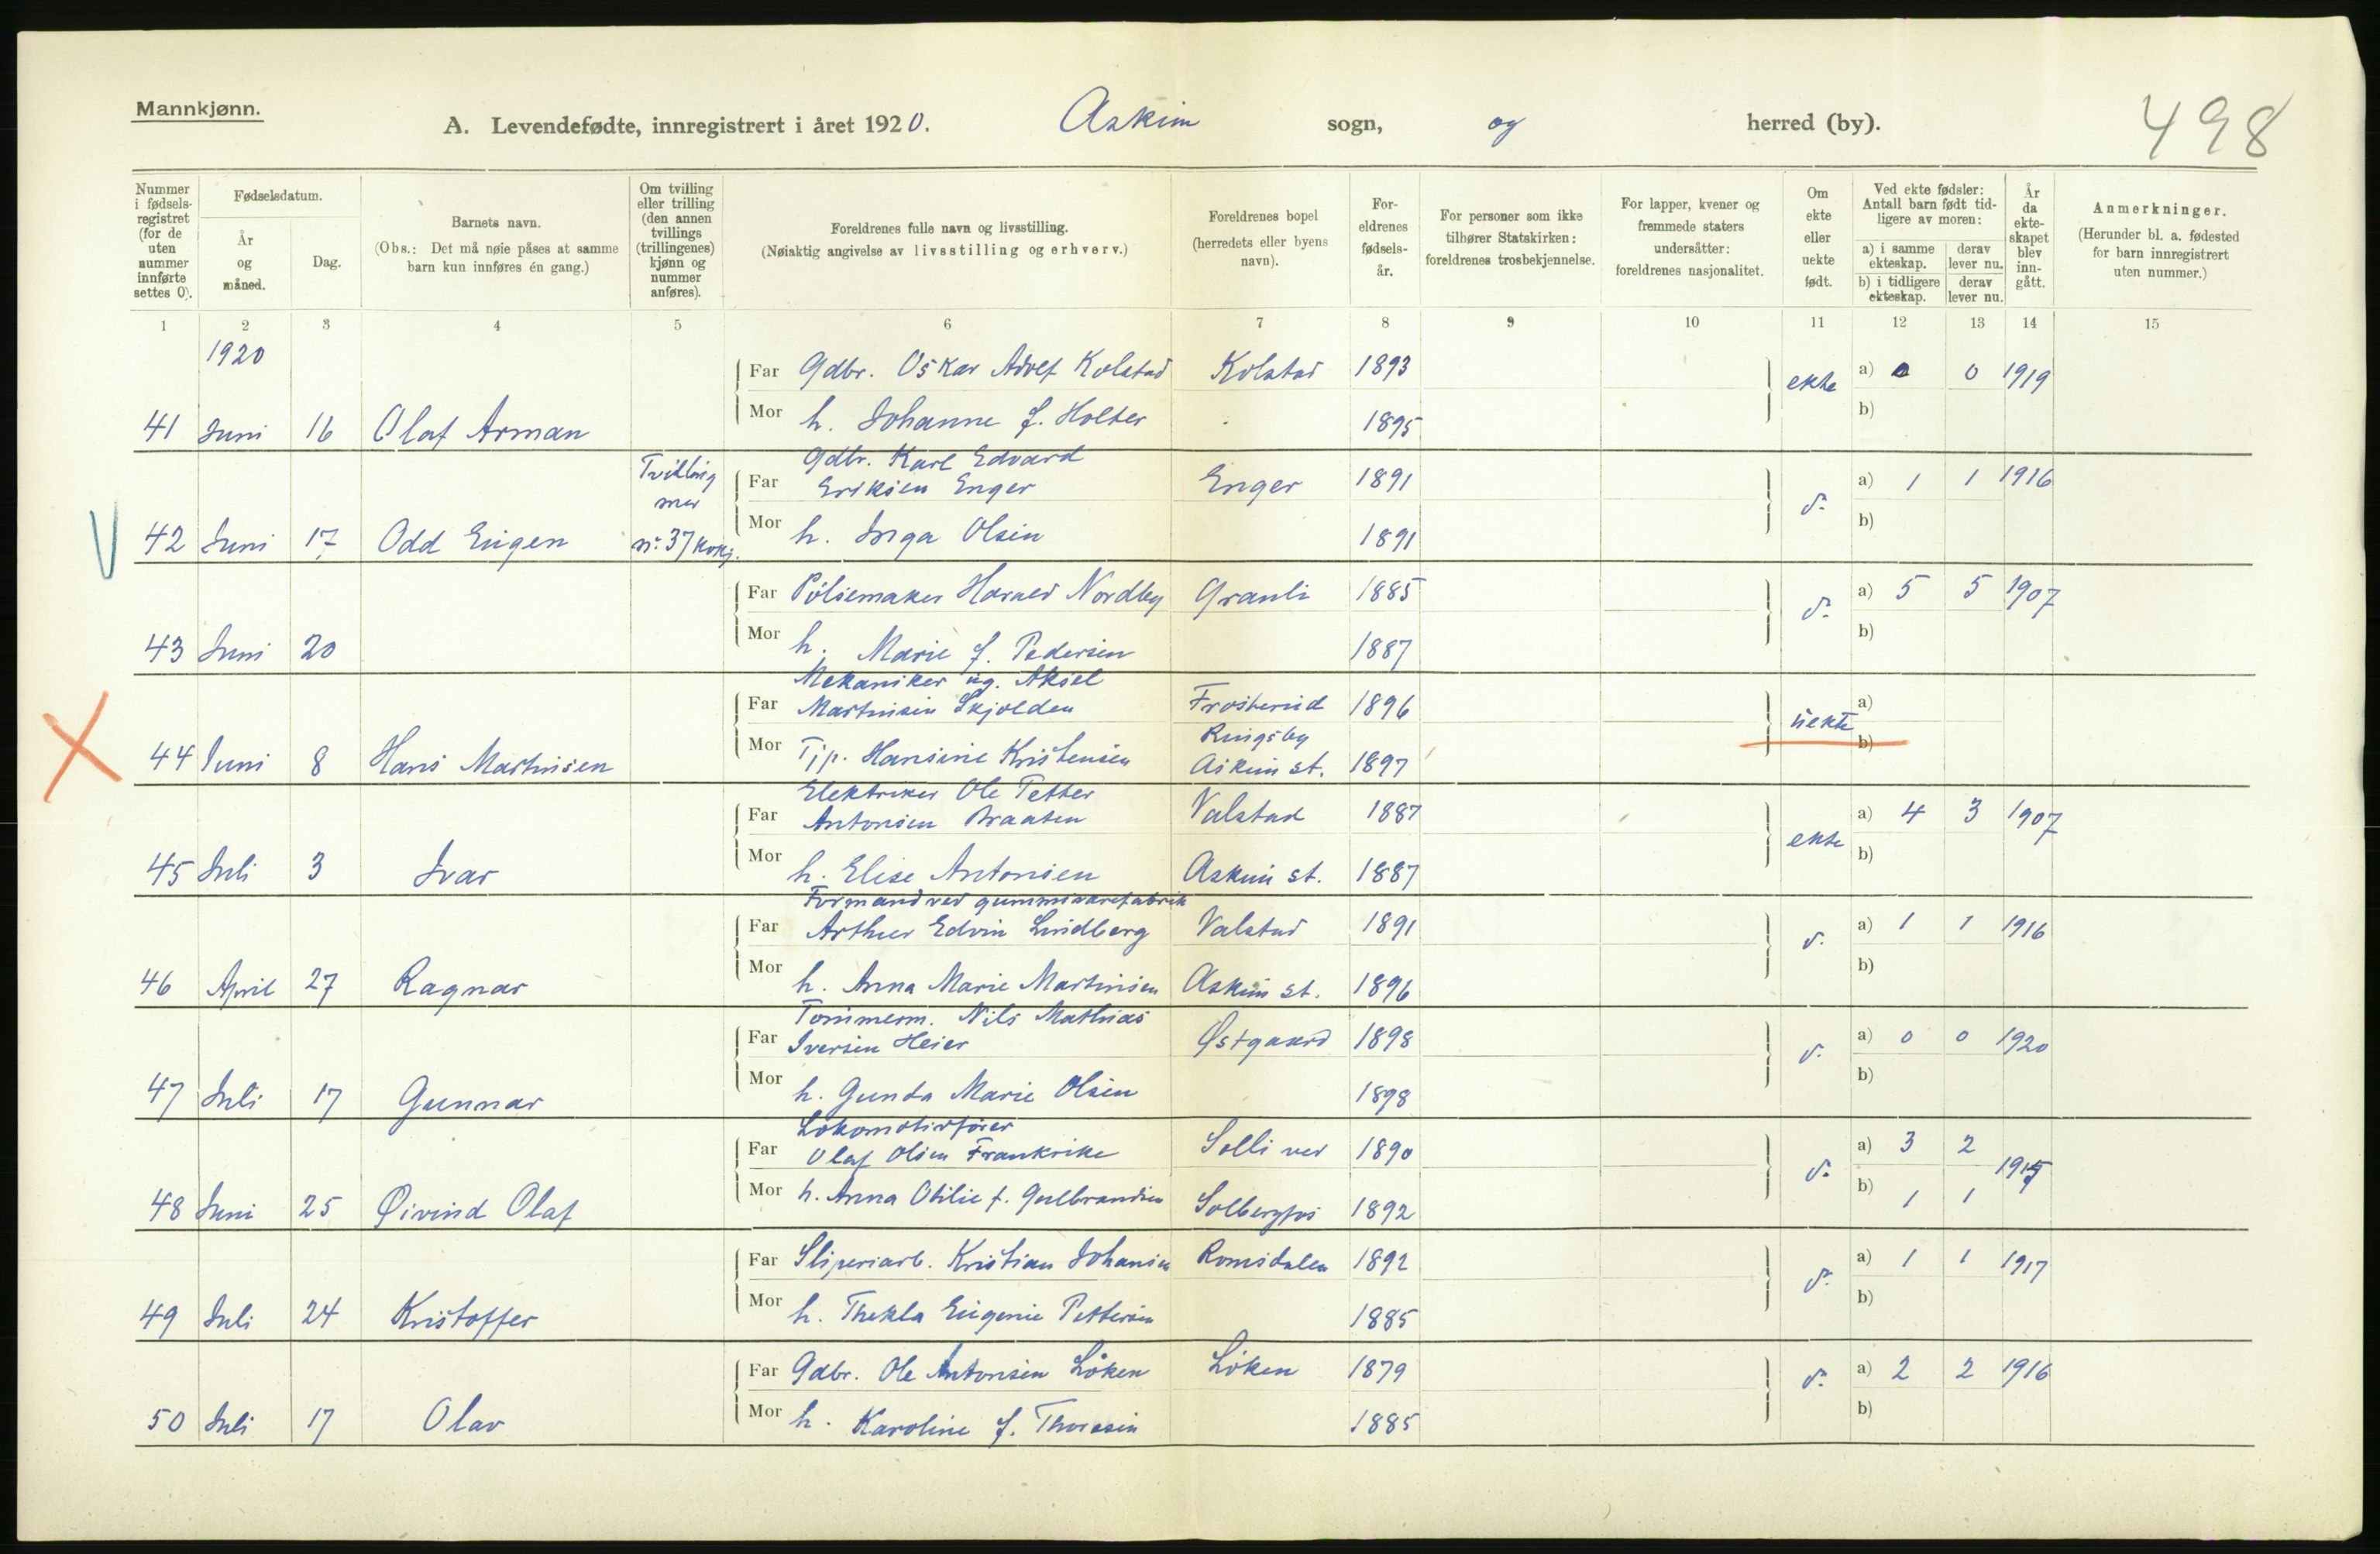 Mannkjønn.
A. Levendefødte, innregistrert i året 1920. Askim sogn, og herred (by). 498
Nummer i fødsels-registret (for de uten nummer innførte settes 0).
Fødselsdatum.
År og måned.
Dag.
Barnets navn.
(Obs.: Det må nøie påses at samme barn kun innføres én gang.)
Om tvilling eller trilling (den annen tvillings (trillingenes) kjønn og nummer anføres).
Foreldrenes fulle navn og livsstilling.
(Nøiaktig angivelse av livsstilling og erhverv.)
Foreldrenes bopel (herredets eller byens navn).
For-eldrenes fødsels-år.
For personer som ikke tilhører Statskirken: foreldrenes trosbekjennelse.
For lapper, kvener og fremmede staters undersåtter: foreldrenes nasjonalitet.
Om ekte eller uekte født.
Ved ekte fødsler: Antall barn født tid-ligere av moren:
a) i samme ekteskap. derav lever nu.
b) i tidligere ekteskap. derav lever nu.
År da ekte-skapet blev inn-gått.
Anmerkninger.
(Herunder bl. a. fødested for barn innregistrert uten nummer.)
1 2 3 4 5 6 7 8 9 10 11 12 13 14 15
1920
Far Gdbr. Oskar Adolf Kolstad Kolstad 1893 ekte a) 0 0 1919
41 Juni 16 Olaf Arman Mor h. Johanne f. Holter 1895 b)
Tvilling med nr. 37 kvkj. Gdbr. Karl Edvard
Far Eriksen Enger Enger 1891 d. a) 1 1 1916
42 Juni 17 Odd Eugen Mor h. Inga Olsen 1891 b)
Far Pölsemaker Harald Nordby Granli 1885 d. a) 5 5 1907
43 Juni 20 Mor h. Marie f. Pedersen 1887 b)
Mekaniker ug. Aksel
Far Martinsen Skjolden Frosterud 1896 uekte a)
Ringsby
44 Juni 8 Hans Martinsen Mor Tjp. Hansine Kristensen Askim st. 1897 b)
Elektriker Ole Petter
Far Antonsen Braaten Valstad 1887 ekte a) 4 3 1907
45 Juli 3 Ivar Mor h. Elise Antonsen Askim st. 1887 b)
Formand ved gummivarefabrik
Far Arthur Edvin Lindberg Valstad 1891 d. a) 1 1 1916
46 April 27 Ragnar Mor h. Anna Marie Martinsen Askim st. 1896 b)
Tømmerm. Nils Mathias
Far Iversen Heier Østgaard 1898 d. a) 0 0 1920
47 Juli 17 Gunnar Mor h. Gunda Marie Olsen 1898 b)
Lokomotivfører
Far Olaf Olsen Frankrike Solli ved 1890 d. a) 3 2
48 Juni 25 Øivind Olaf Mor h. Anna Otilie f. Gulbrandsen Solbergfos 1892 b) 1 1
Far Sliperiarb. Kristian Johansen Romsdalen 1892 d. a) 1 1 1917
49 Juli 24 Kristoffer Mor h. Thekla Eugenie Pettersen 1885 b)
Far Gdbr. Ole Antonsen Löken Löken 1879 d. a) 2 2 1916
50 Juli 17 Olav Mor h. Karoline f. Thoresen 1885 b)